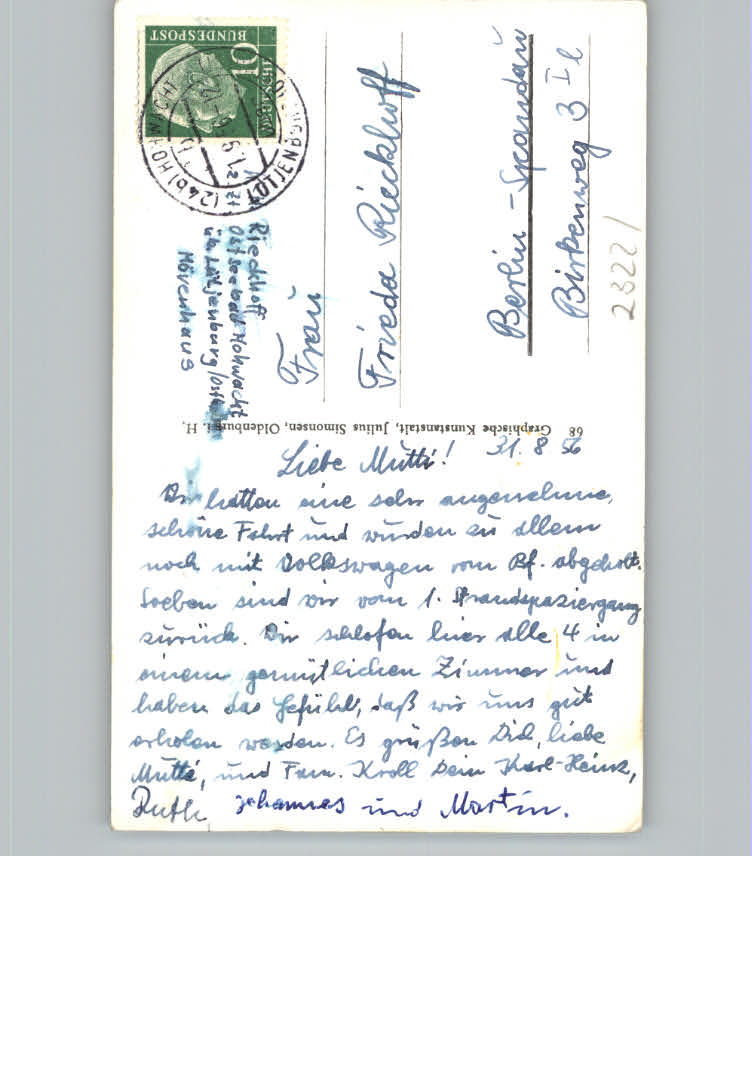 DEUTSCHE
BUNDESPOST
10
(24b) HOHWACHT
LÜTJENBURG
Rieckhoff
Ostseebad Hohwacht
üb. Lütjenburg/Osth.
Mövenhaus
Frau
Frieda Rieckhoff
Berlin-Spandau
Birkenweg 3 I l
2322/
68 Graphische Kunstanstalt, Julius Simonsen, Oldenburg i. H.
31. 8. 56
Liebe Mutti!
Wir hatten eine sehr angenehme,
schöne Fahrt und wurden zu allem
noch mit Volkswagen vom Bf. abgeholt.
Soeben sind wir vom 1. Strandspaziergang
zurück. Wir schlafen hier alle 4 in
einem gemütlichen Zimmer und
haben das Gefühl, daß wir uns gut
erholen werden. Es grüßen Dich, liebe
Mutti, und Fam. Kroll Dein Karl-Heinz,
Ruth, Johannes und Martin.